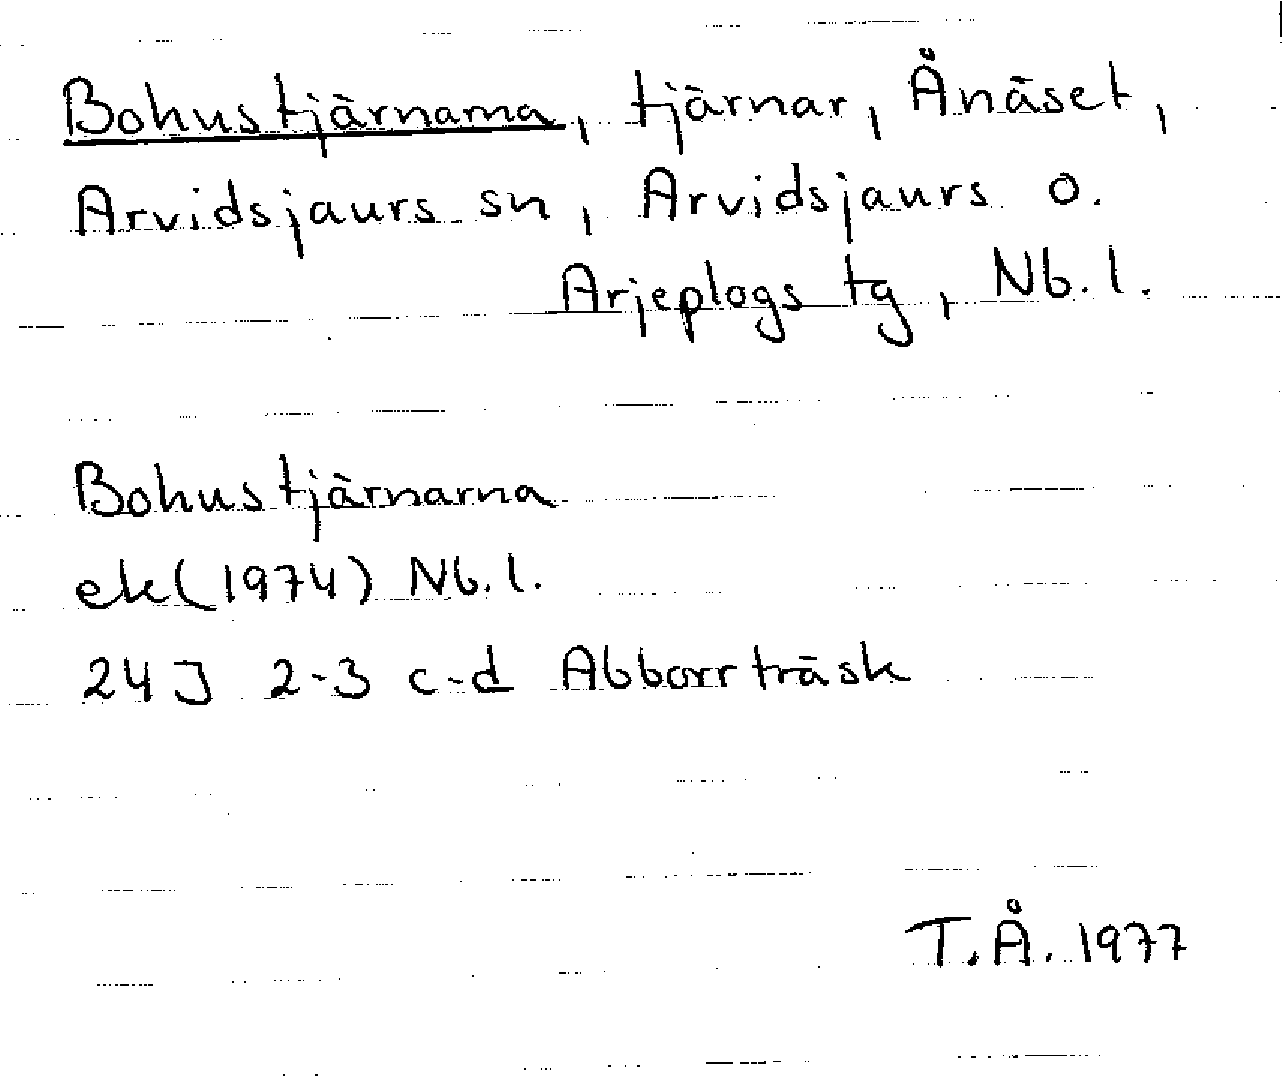 Bohustjärnarna, tjärnar, Ånäset,
Arvidsjaurs sn, Arvidsjaurs o.
Arjeplogs tg, Nb.l.
Bohustjärnarna
ek(1974) Nb.l.
24J 2-3 c-d Abborrträsk
T.Å. 1977